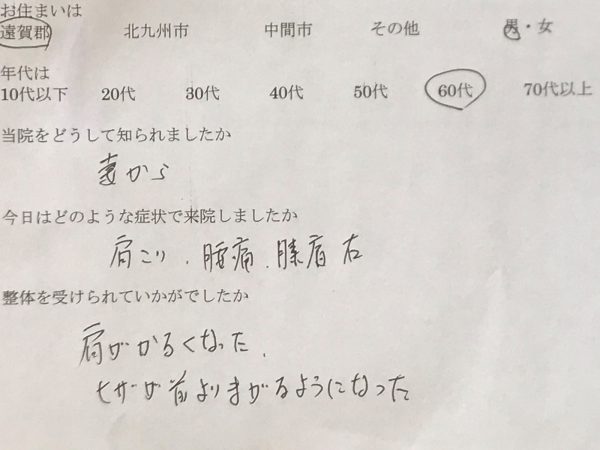 お住まいは
遠賀郡 北九州市 中間市 その他 男・女
年代は
10代以下 20代 30代 40代 50代 60代 70代以上
当院をどうして知られましたか
妻から
今日はどのような症状で来院しましたか
肩こり、腰痛、膝 右
整体を受けられていかがでしたか
肩がかるくなった、
ヒザが前よりまがるようになった